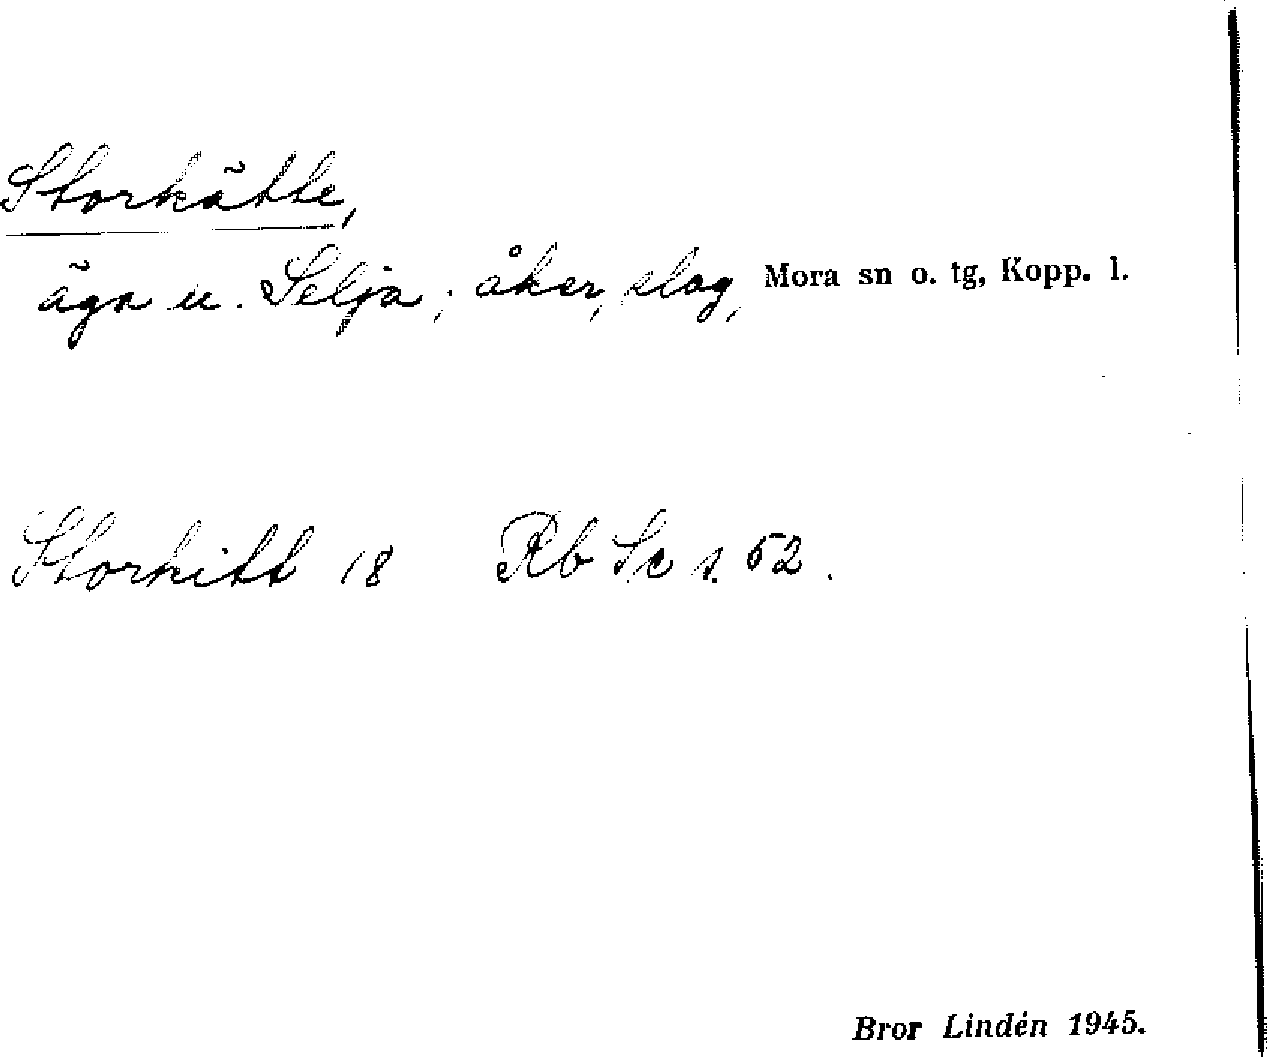 Storkätte,
äga u. Selja; åker, slog, Mora sn o. tg, Kopp. l.
Storkitt 18 Rb Sc s. 52.
Bror Lindén 1945.